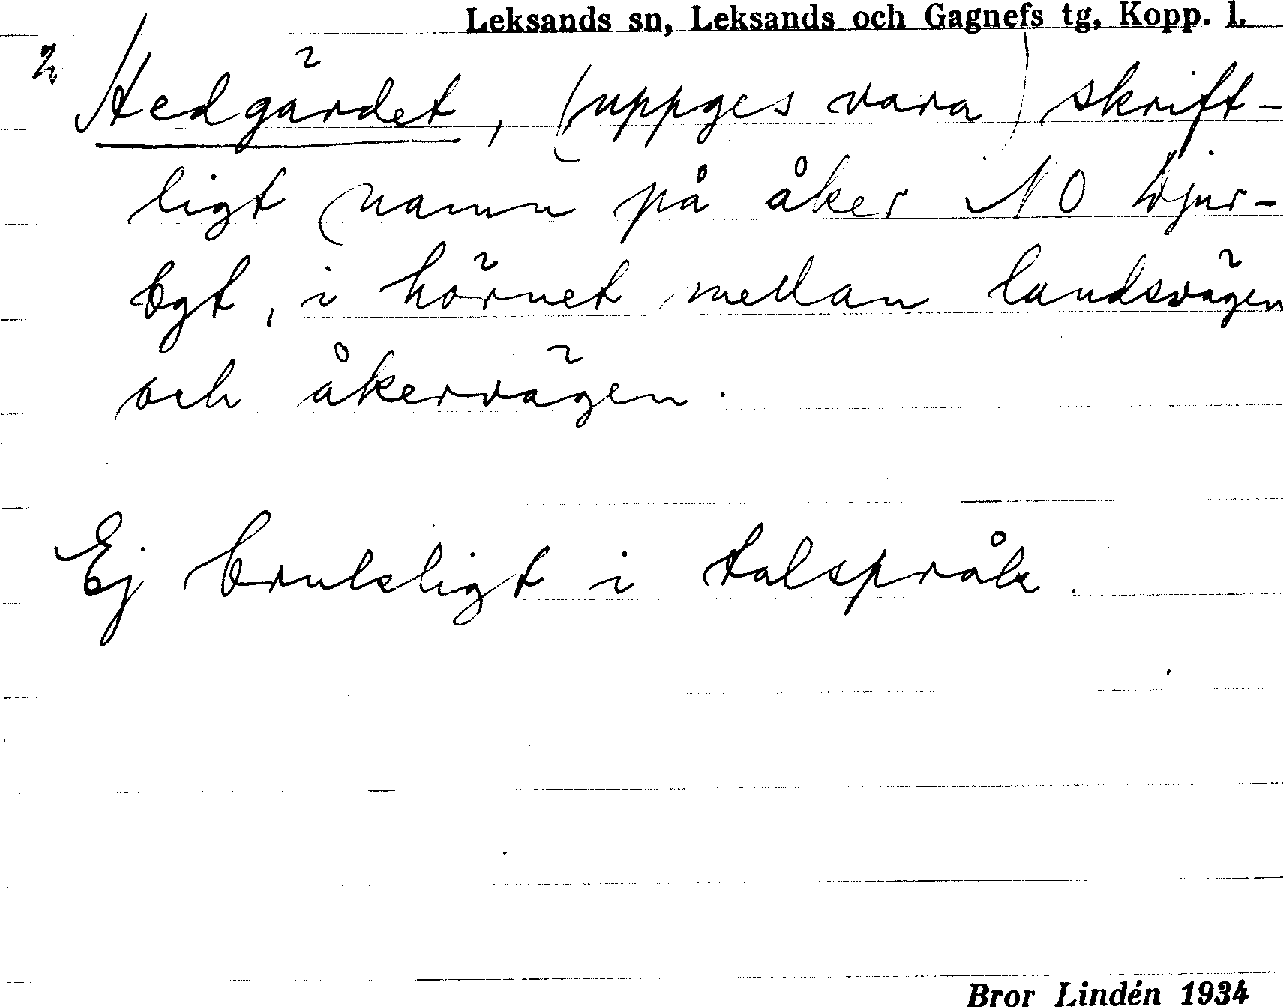 Leksands sn, Leksands och Gagnefs tg, Kopp. l.
Hedgärdet, (uppges vara) skrift-
ligt namn på åker i NO
i hörnet mellan landsvägen
och åkervägen.
Ej brukligt i talspråk.
Bror Lindén 1934